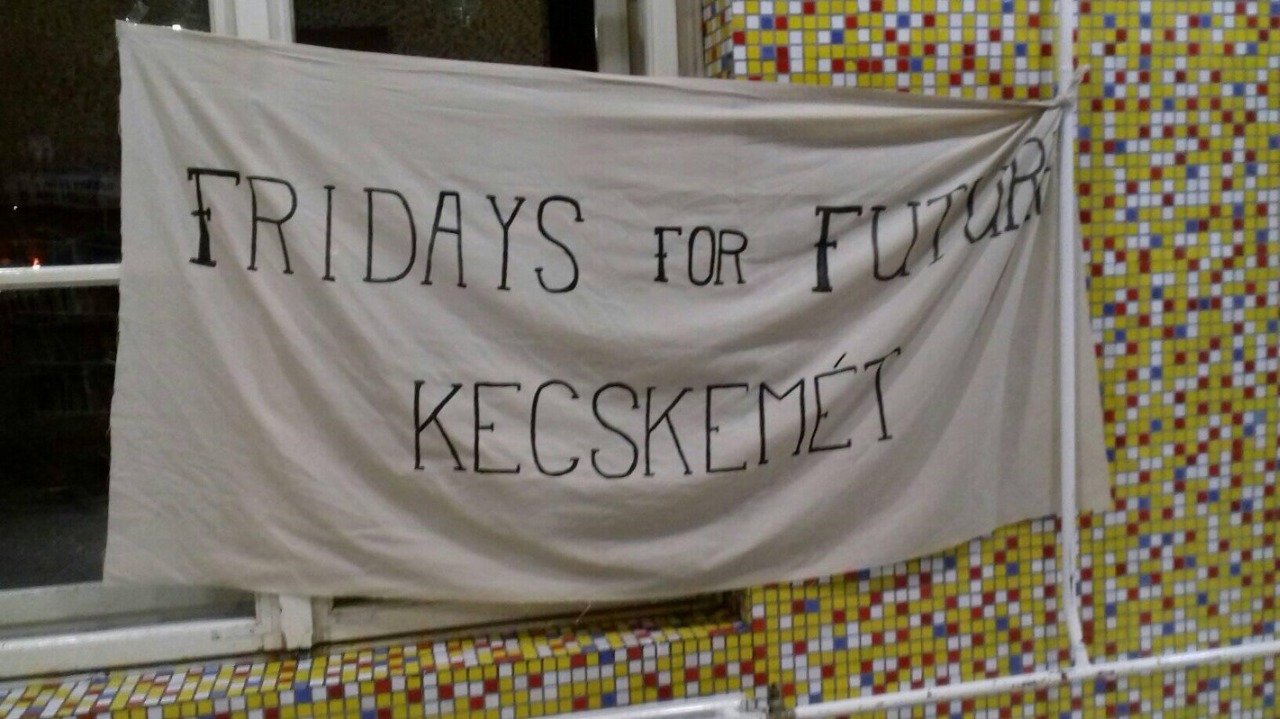 FRIDAYS FOR FUTURE
KECSKEMÉT